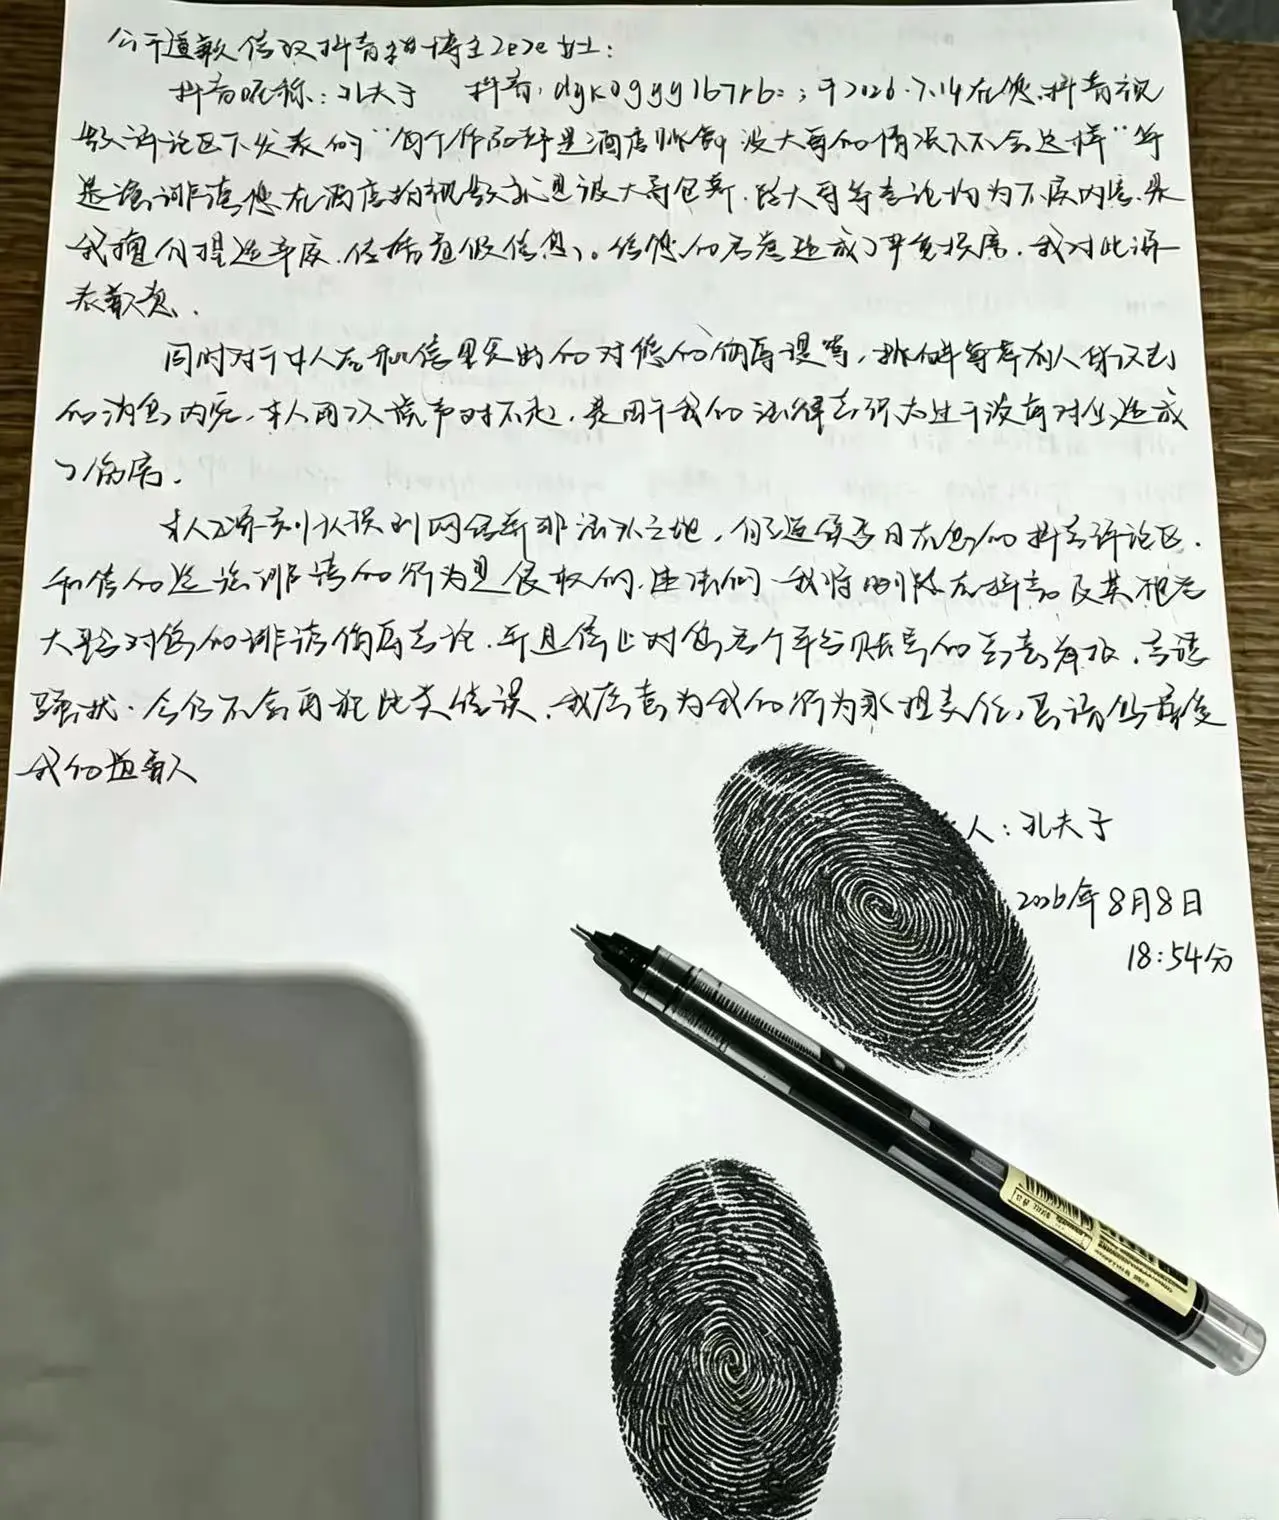 公开道歉信致抖音博主zeze女士：
抖音昵称：孔夫子 抖音：dyk0gyy1b7rb；于2026.7.14在您抖音视
频评论区下发表的“每个作品都是酒店 没大哥的情况下不会这样”等
造谣诽谤您在酒店拍视频就是被大哥包养、大哥等言论均为不实内容，是
我擅自捏造 虚假信息。给您的名誉造成了严重损害，我对此诚
表歉意。
同时对于本人在私信里发的对您的侮辱谩骂，等带有人身攻击
的消息内容，本人再次说声对不起，是由于我的法律意识太过于没有对您造成
了伤害。
本人已深刻认识到网络并非法外之地，在您的抖音评论区、
私信的造谣诽谤的行为是侵权的、违法的 我将删除在抖音及其他
对您的诽谤侮辱言论，并且停止对您 平台账号的 言语
骚扰，今后不会再犯此类错误，我愿意为我的行为承担责任，恳请您接受
我的道歉
人：孔夫子
2026年8月8日
18:54分